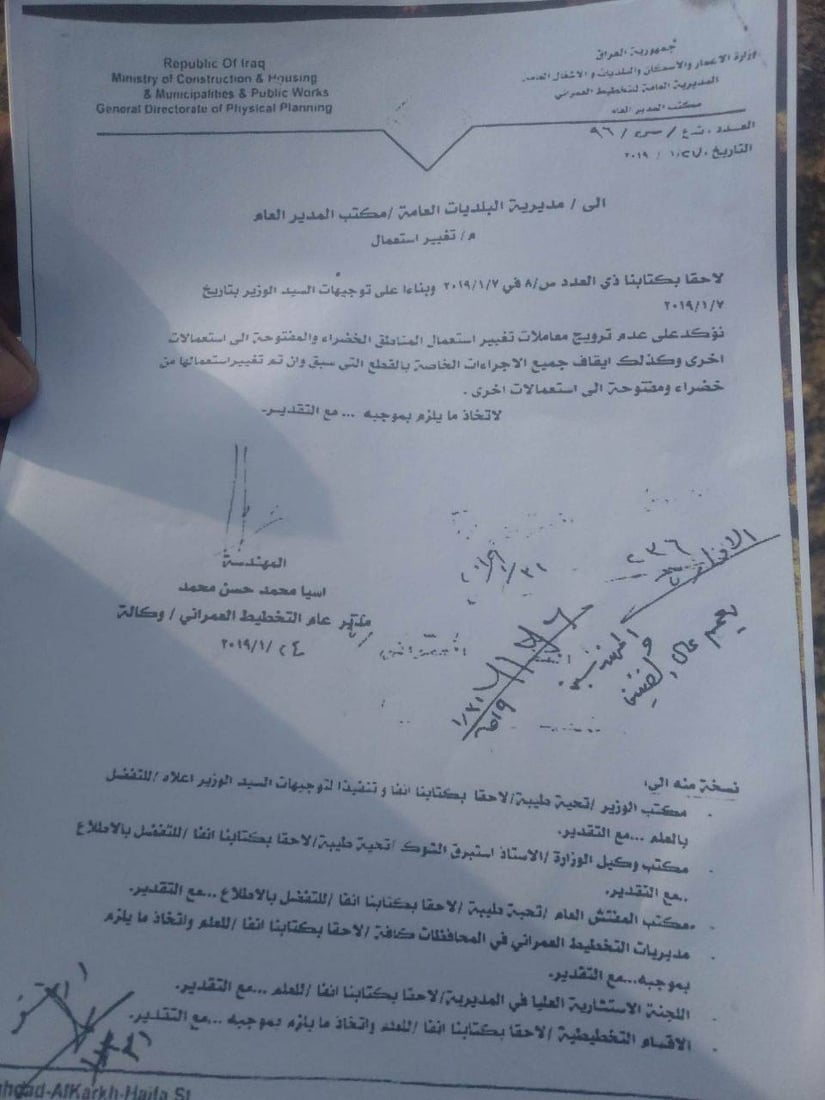 Republic Of Iraq
Ministry of Construction & Housing
& Municipalities & Public Works
General Directorate of Physical Planning
جمهورية العراق
وزارة الاعمار والاسكان والبلديات و الاشغال العامة
المديرية العامة للتخطيط العمراني
مكتب المدير العام
العدد
التاريخ ٢٠١٩
الى / مديرية البلديات العامة /مكتب المدير العام
م/ تغيير استعمال
لاحقا بكتابنا ذي العدد س/٨ في ٢٠١٩/١/٧ وبناءا على توجيهات السيد الوزير بتاريخ
٢٠١٩/١/٧
نؤكد على عدم ترويج معاملات تغيير استعمال المناطق الخضراء والمفتوحة الى استعمالات
اخرى وكذلك ايقاف جميع الاجراءات الخاصة بالقطع التي سبق وان تم تغيير استعمالها من
خضراء ومفتوحة الى استعمالات اخرى .
لاتخاذ ما يلزم بموجبه ... مع التقدير.
المهندسة
اسيا محمد حسن محمد
مدير عام التخطيط العمراني / وكالة
٢٠١٩/١/٢٤
٢٣٦
نسخة منه الى:
- مكتب الوزير /تحية طيبة/لاحقا بكتابنا انفا و تنفيذا لتوجيهات السيد الوزير اعلاه /للتفضل
بالعلم ...مع التقدير.
- مكتب وكيل الوزارة /الاستاذ استبرق الشوك /تحية طيبة/لاحقا بكتابنا انفا /للتفضل بالاطلاع
..مع التقدير.
- مكتب المفتش العام /تحية طيبة /لاحقا بكتابنا انفا /للتفضل بالاطلاع ...مع التقدير.
- مديريات التخطيط العمراني في المحافظات كافة /لاحقا بكتابنا انفا /للعلم واتخاذ ما يلزم
بموجبه...مع التقدير.
- اللجنة الاستشارية العليا في المديرية/لاحقا بكتابنا انفا /للعلم ...مع التقدير.
- الاقسام التخطيطية /لاحقا بكتابنا انفا /للعلم واتخاذ ما يلزم بموجبه ...مع التقدير.
AlKarkh-Haifa St